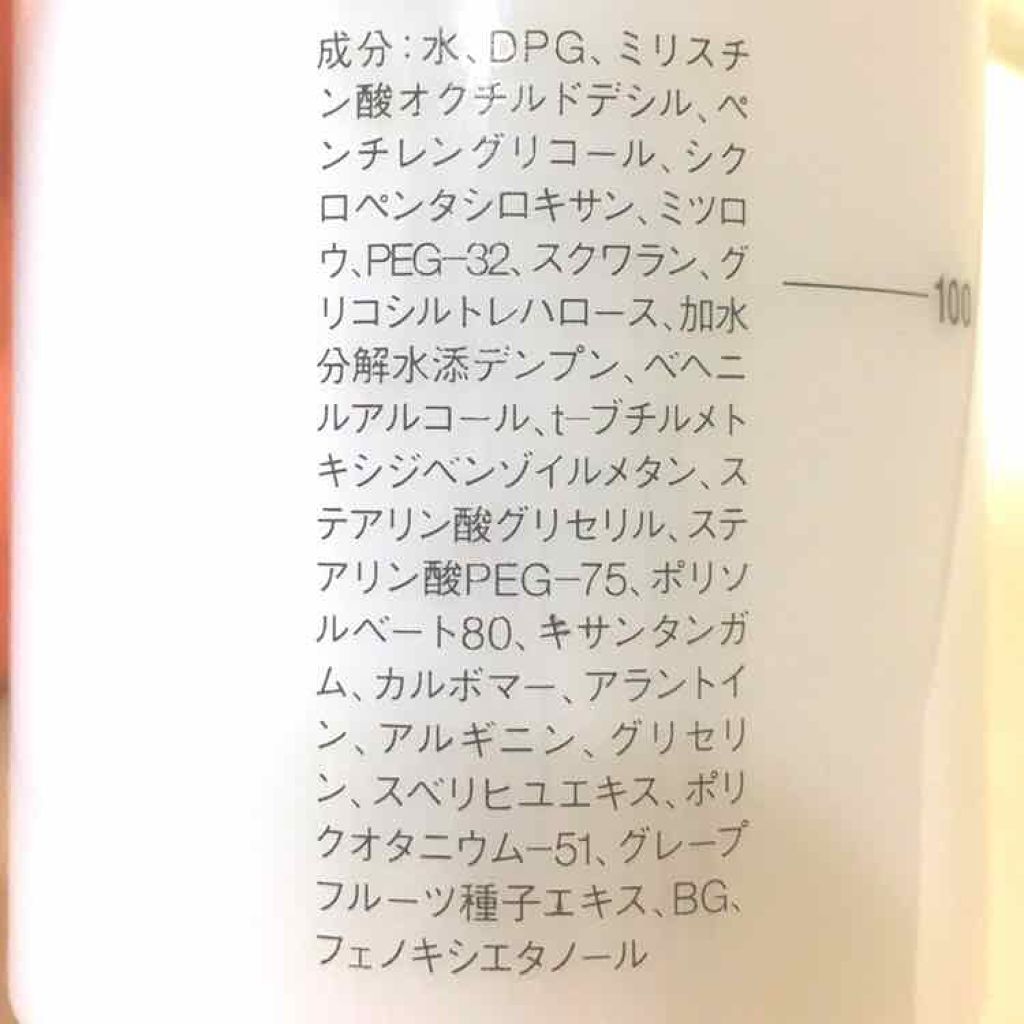 成分：水、DPG、ミリスチ
ン酸オクチルドデシル、ペ
ンチレングリコール、シク
ロペンタシロキサン、ミツロ
ウ、PEG−32、スクワラン、グ
リコシルトレハロース、加水
分解水添デンプン、ベヘニ
ルアルコール、t−ブチルメト
キシジベンゾイルメタン、ス
テアリン酸グリセリル、ステ
アリン酸PEG−75、ポリソ
ルベート80、キサンタンガ
ム、カルボマー、アラントイ
ン、アルギニン、グリセリ
ン、スベリヒユエキス、ポリ
クオタニウム−51、グレープ
フルーツ種子エキス、BG、
フェノキシエタノール
100